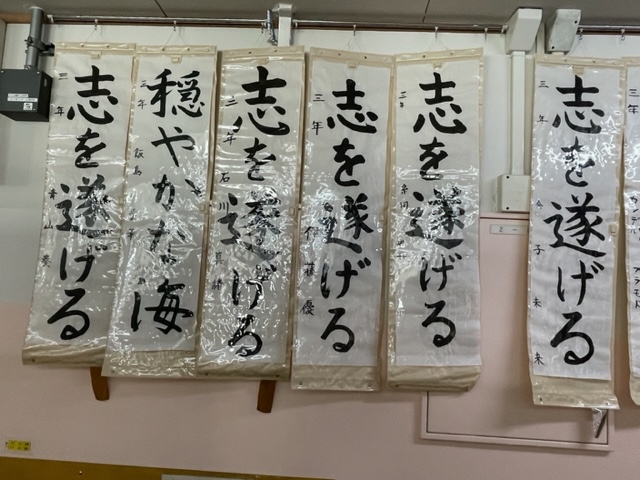 志を遂げる
三年
穏やかな海
三年 飯島
志を遂げる
二年 石川
志を遂げる
三年 伊藤優
志を遂げる
三年
志を遂げる
三年 金子未来